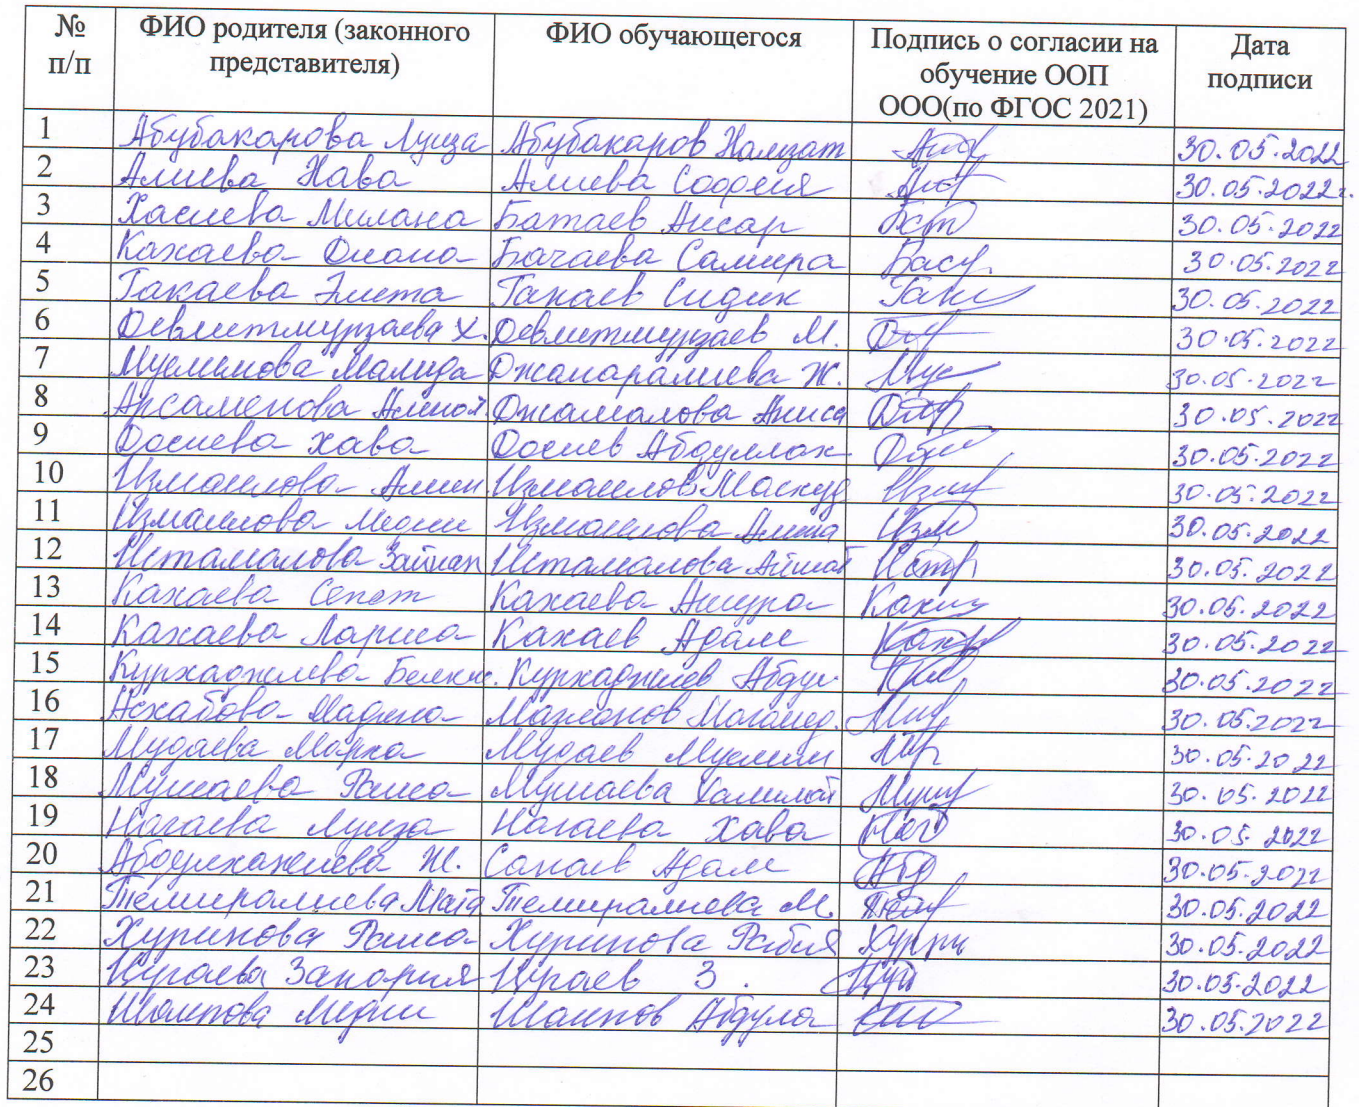 № п/п ФИО родителя (законного представителя) ФИО обучающегося Подпись о согласии на обучение ООП ООО(по ФГОС 2021) Дата подписи
1 Абубакарова Луиза Абубакаров Хамзат 30.05.2022
2 Алиева Хава Алиева София 30.05.2022г.
3 Хасиева Милана Батаев Ансар 30.05.2022
4 Кахаева Диана Бачаева Самира 30.05.2022
5 Гакаева Элита Гакаев Сидик 30.05.2022
6 Девлетмурзаева Х. Девлетмурзаев М. 30.05.2022
7 Муслимова Малида Джапаралиева Ж. 30.05.2022
8 Арсаменова Джамалова Аниса 30.05.2022
9 Досиева Хава Досиев Абдуллах 30.05.2022
10 Измаилова Амин Измаилов Максуд 30.05.2022
11 Измаилова Медни Измаилова Амина 30.05.2022
12 Истамалова Зайнап Истамалова Айшат 30.05.2022
13 Кахаева Сепет Кахаева Ашура 30.05.2022
14 Кахаева Лариса Кахаев Адам 30.05.2022
15 Курхаджиева Белкис. Курхаджиев Абдул 30.05.2022
16 Асхабова Мадина Мазланов Магомед. 30.05.2022
17 Мудаева Марха Мудаев Муслим 30.05.2022
18 Мушаева Раиса Мушаева Хамилат 30.05.2022
19 Нагаева Луиза Нагаева Хава 30.05.2022
20 Абдулкажиева Ж. Сапаев Адам 30.05.2022
21 Темиралиева Темиралиева М. 30.05.2022
22 Хуринова Раиса Хуринова Рабия 30.05.2022
23 Цугаева Закария Цугаев З. 30.05.2022
24 Шаипова Медни Шаипов Абдула 30.05.2022
25
26